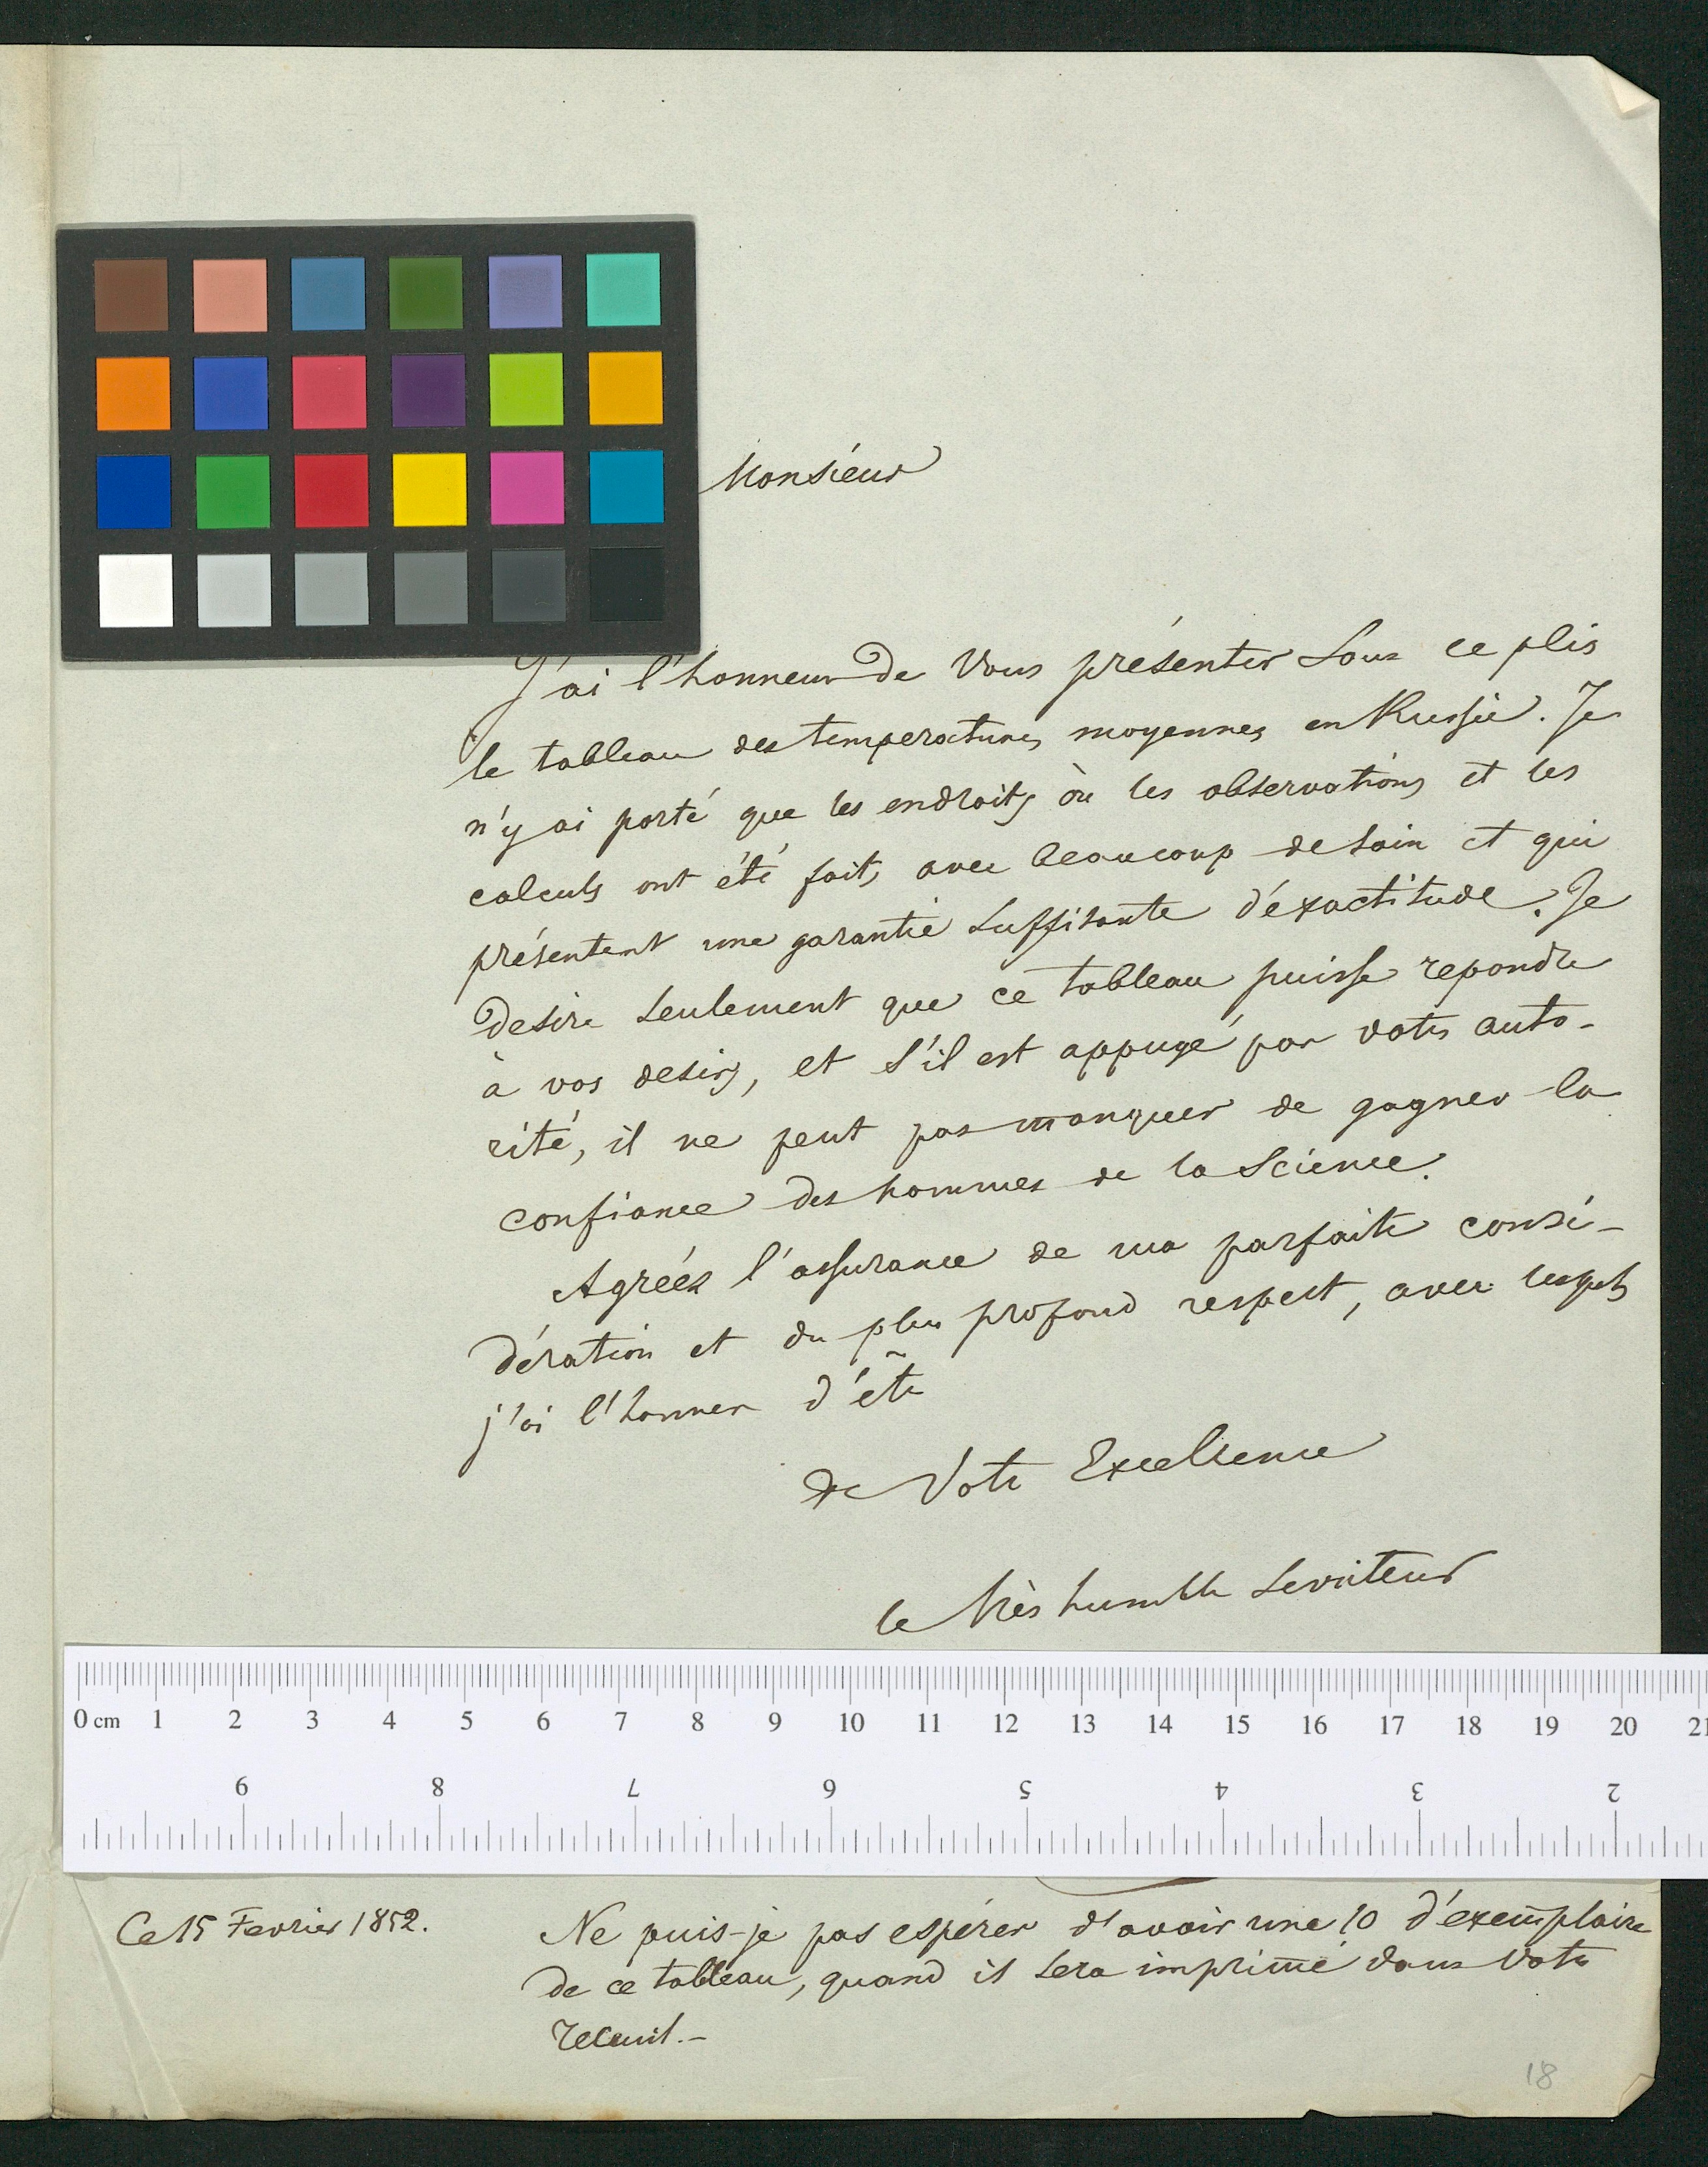 Monsieur
J'ai l'honneur de Vous présenter sous ce plis
le tableau des temperatures moyennes en Russie. Je
n'y ai porté que les endroits où les observations et les
calculs ont été faits avec beaucoup de soin et qui
présentent une garantie suffisante d'éxactitude. Je
desire seulement que ce tableau puisse repondre
à vos desirs, et s'il est appuyé par votre auto-
rité, il ne peut pas manquer de gagner la
confiance des hommes de la Science.
Agréés l'assurance de ma parfaite consi-
dération et du plus profond respect, avec lesquels
j'ai l'honneur d'être
de Votre Excellence
le très humble serviteur
0 cm 1 2 3 4 5 6 7 8 9 10 11 12 13 14 15 16 17 18 19 20 21
9 8 7 6 5 4 3 2
Ce 15 Fevrier 1852.
Ne puis-je pas espérer d'avoir une 10 d'exemplaire
de ce tableau, quand il sera imprimé dans Votre
receuil.-
18